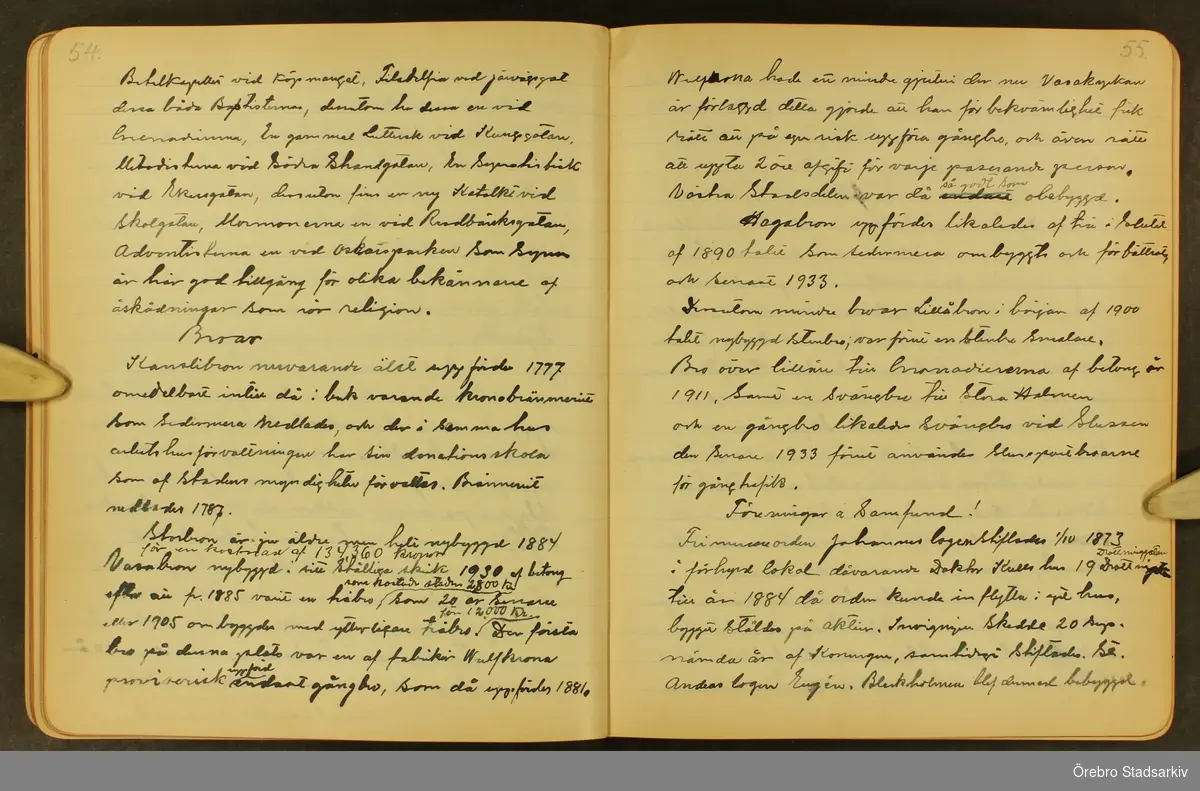 54.
Betelkapellet vid Köpmangat. Filadelfia ved järvägsgat
dessa båda Baptisternas, desutom ha dessa en vid
Grenadierna, En gammal Luthersk vid Kungsgatan,
Metodisterna vid Södra Strandgatan, En
vid Ekersgatan, desutom fins en ny Katolsk vid
Skolgatan, Mormonerna en vid Rudbäcksgatan,
Adventisterna en vid Oskarsparken som synes
är här god tillgång för olika bekännare af
åskådningar som rör religion.
Broar
Kanslibron nuvarande älst uppförde 1777
omedelbart intill då i bak varande Kronobränneriet
som sedermera nedlades, och der i samma hus
arbetshusförvaltningen har sin donationsskola
som af Stadens myndigheter förvaltas. Bränneriet
nedlades 1787.
Storbron är ju äldre men helt nybyggd 1884
för en kostnad af 134,360 kronor
Vasabron nybyggd i sitt ståtliga skick 1930 af betong
som kostade staden 2800 Kr
efter att fr. 1885 varit en träbro, som 20 år senare
för 12,000 Kr.
eller 1905 ombyggdes med ytterligare träbro. Den första
bro på denna plats var en af fabrikör Wulfkrona
uppförd
provisorisk endast gångbro, som då uppfördes 1881.
55.
Wulfkrona hade ett mindre gjuteri der nu Vasakyrkan
är förlaggd detta gjorde att han för bekvämlighet fick
rätt att på egen risk uppföra gångbro, och även rätt
att uppta 2 öre afgift för varje paserande person.
så godt som
Västra Stadsdelen var då endast obebyggd.
Hagabron uppfördes likaledes af trä i slutet
af 1890 talet som sedermera ombyggts och förbättrats
och senast 1933.
Desutom mindre broar Lillåbron i början af 1900
talet nybyggd stenbro, var förut en stenbro smalare.
Bro över lillån till Grenadiererna af betong år
1911. Samt en Svängbro till Stora Holmen
och en gångbro likaledes Svängbro vid Slussen
den senare 1933 förut användes slussportbroarne
för gångtrafik.
Föreningar a Samfund!
Frimurareorden Johannes logen stiftades 1/10 1873
Drottninggatan
i förhyrd lokal dåvarande Doktor Kulls hus 19
till år 1884 då orden kunde inflytta i eget hus,
bygget ståldes på aktier. Invigningen skedde 20
nämda år af Konungen, samtidigt stiftades. St.
Andreas logen Eugén. Blekholmen blef dermed bebyggd.
Örebro Stadsarkiv